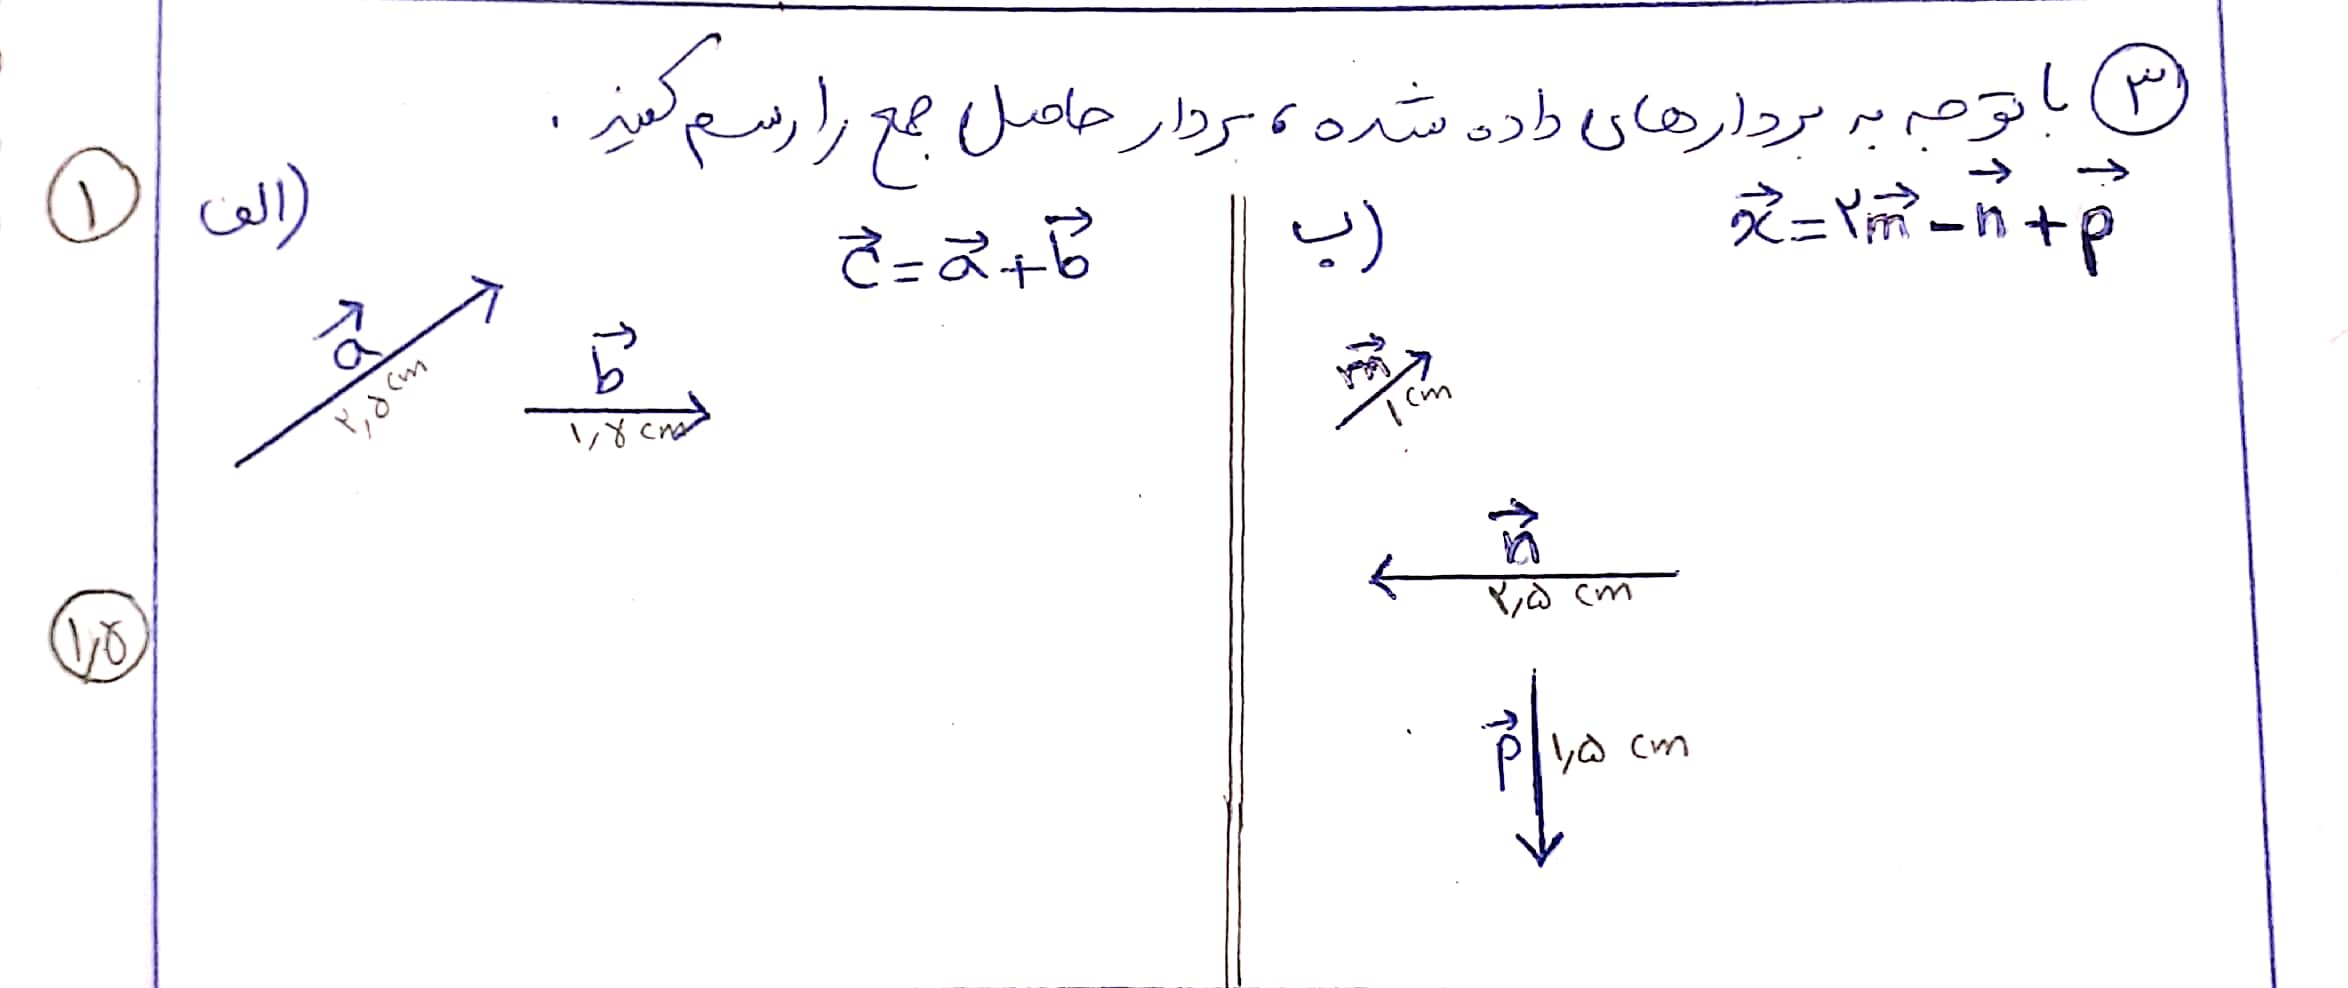 ۳ با توجه به بردارهای داده شده، بردار حاصل جمع را رسم کنید.
۱
الف)
c⃗ = a⃗ + b⃗
a⃗
۲,۵ cm
b⃗
۱,۵ cm
ب)
x⃗ = ۲m⃗ - n⃗ + p⃗
m⃗
۱ cm
n⃗
۲,۵ cm
p⃗
۱,۵ cm
۱,۵